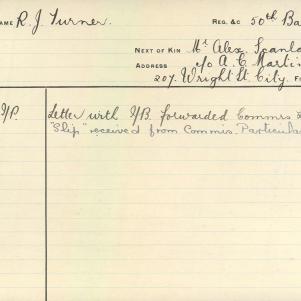 NAME R. J. Turner. REG. &C 50th Ba
NEXT OF KIN Mr Alex. Scanla
ADDRESS c/o A. C. Marti
207. Wright St. City. Fo
Y/P. Letter with Y/B. forwarded Commrs
"Slip" received from Commis. Particula